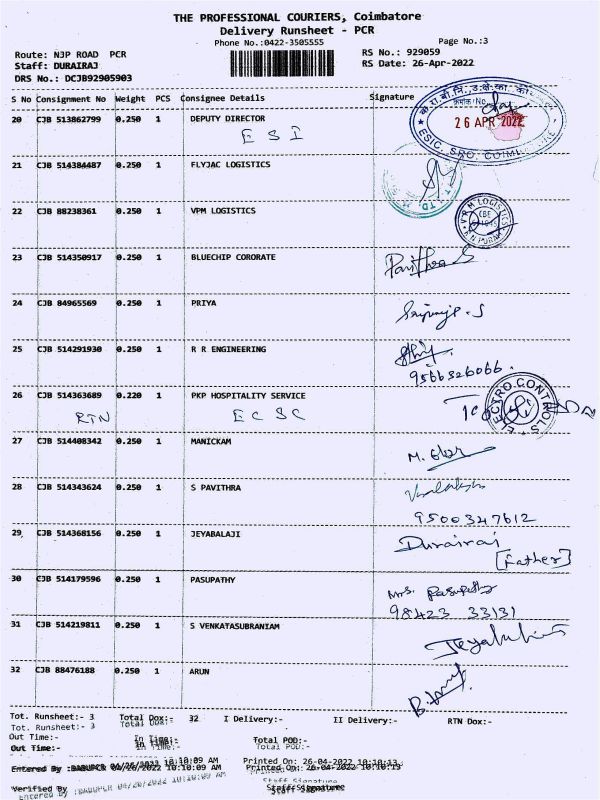 THE PROFESSIONAL COURIERS, Coimbatore
Delivery Runsheet - PCR
Phone No.:0422-3505555
Page No.:3
Route: N3P ROAD PCR
RS No.: 929059
Staff: DURAIRAJ
RS Date: 26-Apr-2022
DRS No.: DCJB92905903
S No Consignment No Weight PCS Consignee Details Signature
20 CJB 513862799 0.250 1 DEPUTY DIRECTOR
ESI
26 APR 2022
ESIC, SRO, COIMBATORE
21 CJB 514384487 0.250 1 FLYJAC LOGISTICS
22 CJB 88238361 0.250 1 VPM LOGISTICS
23 CJB 514350917 0.250 1 BLUECHIP CORORATE
Pavithra S
24 CJB 84965569 0.250 1 PRIYA
25 CJB 514291930 0.250 1 R R ENGINEERING
9566326066.
26 CJB 514363689 0.220 1 PKP HOSPITALITY SERVICE
RTN ECSC
ELECTRO CONTROLS
27 CJB 514408342 0.250 1 MANICKAM
28 CJB 514343624 0.250 1 S PAVITHRA
9500347612
29 CJB 514368156 0.250 1 JEYABALAJI
Durairaj
[Father]
30 CJB 514179596 0.250 1 PASUPATHY
Mrs. Pasupathy
98423 33131
31 CJB 514219811 0.250 1 S VENKATASUBRANIAM
32 CJB 88476188 0.250 1 ARUN
Tot. Runsheet:- 3 Total Dox:- 32 I Delivery:- II Delivery:- RTN Dox:-
Tot. Runsheet:- 3 Total Dox:-
Out Time:- In Time:- Total POD:-
Out Time:- In Time:- Total POD:-
Entered By :BABUPCR 04/26/2022 10:10:09 AM Printed On: 26-04-2022 10:10:13
Verified By Staff Signature
Entered By :BABUPCR 04/26/2022 10:10:09 AM